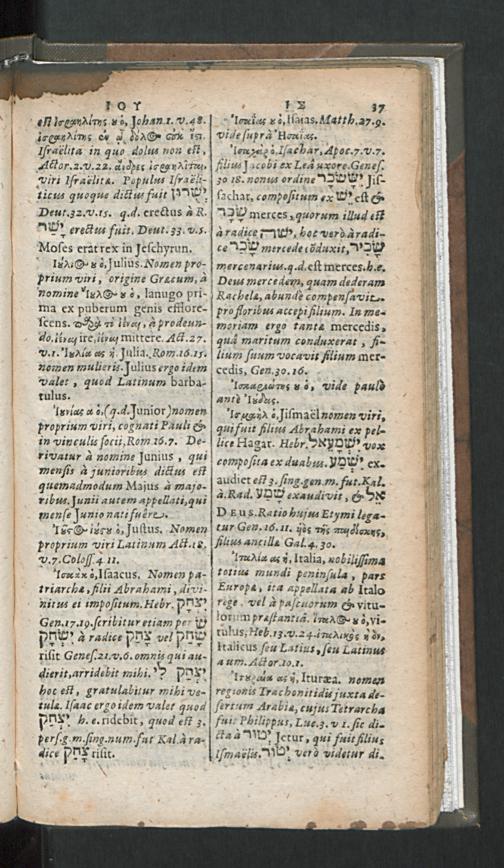 ΙΟΥ
ΙΣ 37
est Ισραηλίτης ου ὁ, Johan. 1. v. 48.
ἰσραηλίτης ἐν ᾧ δόλος οὐκ ἔστι.
Israëlita in quo dolus non est,
Actor. 2. v. 22. ἄνδρες ἰσραηλῖται,
viri Israëlitæ. Populus Israëli-
ticus quoque dictus fuit יְשֻׁרוּן
Deut. 32. v. 15. q.d. erectus à R.
יָשַׁר erectus fuit. Deut. 33. v. 5.
Moses erat rex in Jeschyrun.
Ιούλιος ου ὁ, Julius. Nomen pro-
prium viri, origine Græcum, à
nomine Ἴουλος ου ὁ, lanugo pri-
ma ex puberum genis efflore-
scens. παρὰ τὸ ἰέναι, à prodeun-
do. ἰέναι ire, ἱέναι mittere. Act. 27.
v. 1. Ἰουλία ας ἡ. Julia. Rom. 16. 15.
nomen mulieris. Julius ergo idem
valet, quod Latinum barba-
tulus.
Ἰουνίας α ὁ, (q.d. Junior) nomen
proprium viri, cognati Pauli &
in vinculis socii, Rom. 16. 7. De-
rivatur à nomine Junius, qui
mensis à junioribus dictus est
quemadmodum Majus à majo-
ribus. Junii autem appellati, qui
mense Junio nati fuêre.
Ἰοῦστος ιούστου ὁ, Justus. Nomen
proprium viri Latinum Act. 18.
v. 7. Coloss. 4 11.
Ἰσαὰκ ὁ, Isaacus. Nomen pa-
triarchæ, filii Abrahami, divi-
nitus ei impositum. Hebr. יִצְחָק
Gen. 17. 19. scribitur etiam per שׂ
יִשְׂחָק à radice צָחַק vel שָׂחַק
risit Genes. 21. v. 6. omnis qui au-
dierit, arridebit mihi. יִצְחַק לִי
hoc est, gratulabitur mihi ve-
tula. Isaac ergo idem valet quod
יִצְחָק h. e. ridebit, quod est 3.
pers. g. m. sing. num. fut Kal. à ra-
dice צָחַק risit.
Ἰσαΐας ου ὁ, Isaias. Matth. 27. 9.
vide suprà Ἠσαΐας.
Ἰσαχὰρ ὁ, Isachar, Apoc. 7. v. 7.
filius Jacobi ex Leâ uxore. Genes.
30 18. nonus ordine יִשָּׂשכָר Jis-
sachar, compositum ex יֵשׁ est &
שָׂכָר merces, quorum illud est
à radice יָשָׁה, hoc verò à radi-
ce שָׂכַר mercede cōduxit, שָׂכִיר
mercenarius. q.d. est merces. h.e.
Deus mercedem, quam dederam
Rachelæ, abundè compensavit.
pro floribus accepi filium. In me-
moriam ergo tantæ mercedis,
quâ maritum conduxerat, fi-
lium suum vocavit filium mer-
cedis, Gen. 30. 16.
Ἰσκαριώτης ου ὁ, vide paulò
antè Ἰούδας.
Ἰσμαὴλ ὁ, Jismaël nomen viri,
qui fuit filius Abrahami ex pel-
lice Hagar. Hebr. יִשְׁמָעֵאל vox
composita ex duabus. יִשְׁמַע ex-
audiet est 3. sing. gen. m. fut. Kal.
à Rad. שָׁמַע exaudivit, & אֵל
DEUS. Ratio hujus Etymi lega-
tur Gen. 16. 11. υἱὸς τῆς παιδίσκης,
filius ancillæ Gal. 4. 30.
Ἰταλία ας ἡ, Italia, nobilissima
totius mundi peninsula, pars
Europæ, ita appellata ab Italo
rege. vel à pascuorum & vitu-
lorum præstantiâ. ἰταλὸς ου ὁ, vi-
tulus, Heb. 13. v. 24. ἰταλικὸς ἡ ὀν,
Italicus seu Latius, seu Latinus
a um. Actor. 10. 1.
Ἰτουραία ας ἡ, Ituræa. nomen
regionis Trachonitidis juxta de-
sertum Arabiæ, cujus Tetrarcha
fuit Philippus, Luc. 3. v 1. sic di-
cta à יְטוּר Jetur, qui fuit filius
Ismaëlis. יְטוּר verò videtur di-